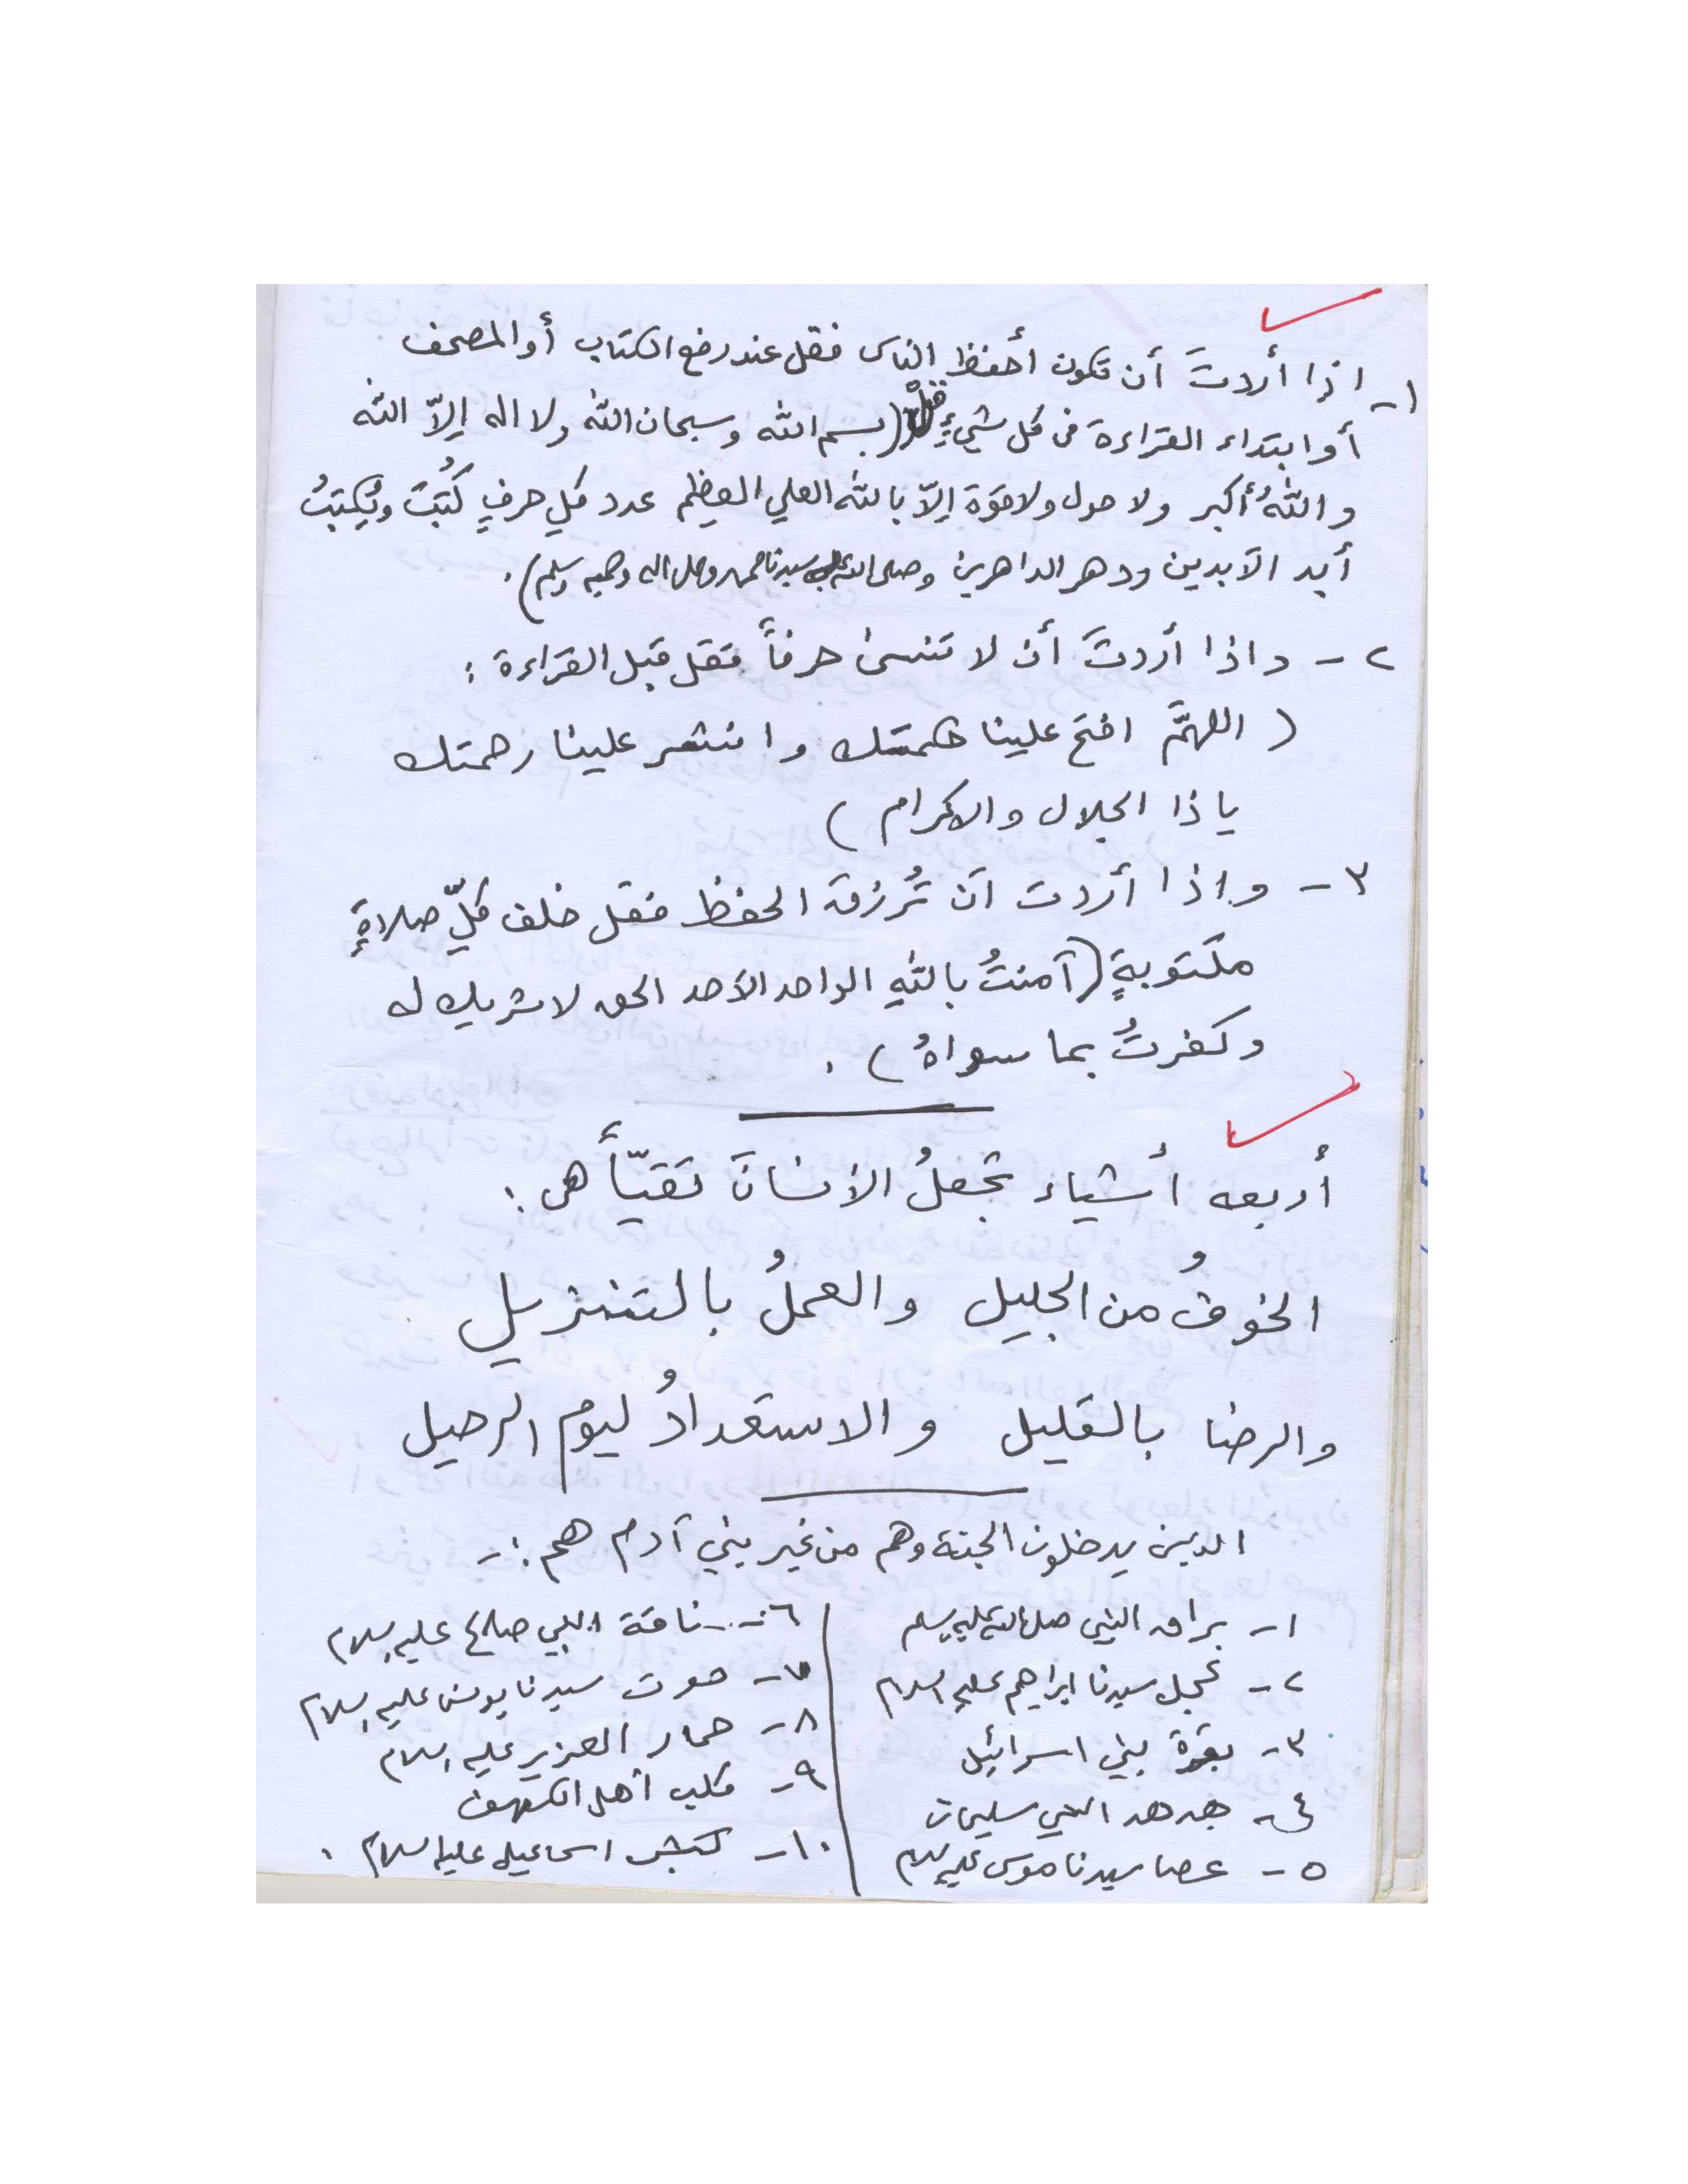 ١- اذا أردتَ أن تكون أحفظ الناس فقل عند رفع الكتاب أو المصحف
أو ابتداء القراءة في كل شيءٍ قُلْ (بسم الله وسبحان الله ولا اله إلّا الله
واللهُ أكبر ولا حول ولا قوّة إلّا بالله العلي العظيم عدد كلِ حرفٍ كُتِبَتْ ويُكتبُ
أبد الآبدين ودهر الداهرين وصلى الله على سيدنا محمد وعلى اله وصحبه وسلم).
٢- واذا أردتَ أن لا تنسىٰ حرفاً فقل قبل القراءة :
( اللهمَّ افتح علينا حكمتك وانشر علينا رحمتك
يا ذا الجلال والاكرام )
٣- واذا أردت أن تُرزقَ الحفظ فقل خلف كلِّ صلاةٍ
مكتوبةٍ (آمنتُ باللهِ الواحد الأحد الحق لا شريك له
وكفرتُ بما سواهُ ) .
أربعه أشياء تجعلُ الانسانَ تقيّاً هي :
الخوفُ من الجليل والعملُ بالتنزيل
والرضا بالقليل والاستعدادُ ليوم الرحيل
الذين يدخلون الجنة وهم من غير بني آدم هم :-
١- براق النبي صلى الله عليه وسلم
٢- عجل سيدنا ابراهيم عليه السلام
٣- بقرة بني اسرائيل
٤- هدهد النبي سليمان
٥- عصا سيدنا موسى عليه السلام
٦- ناقة النبي صالح عليه السلام
٧- حوت سيدنا يونس عليه السلام
٨- حمار العزير عليه السلام
٩- كلب أهل الكهف
١٠- كبش اسماعيل عليه السلام .